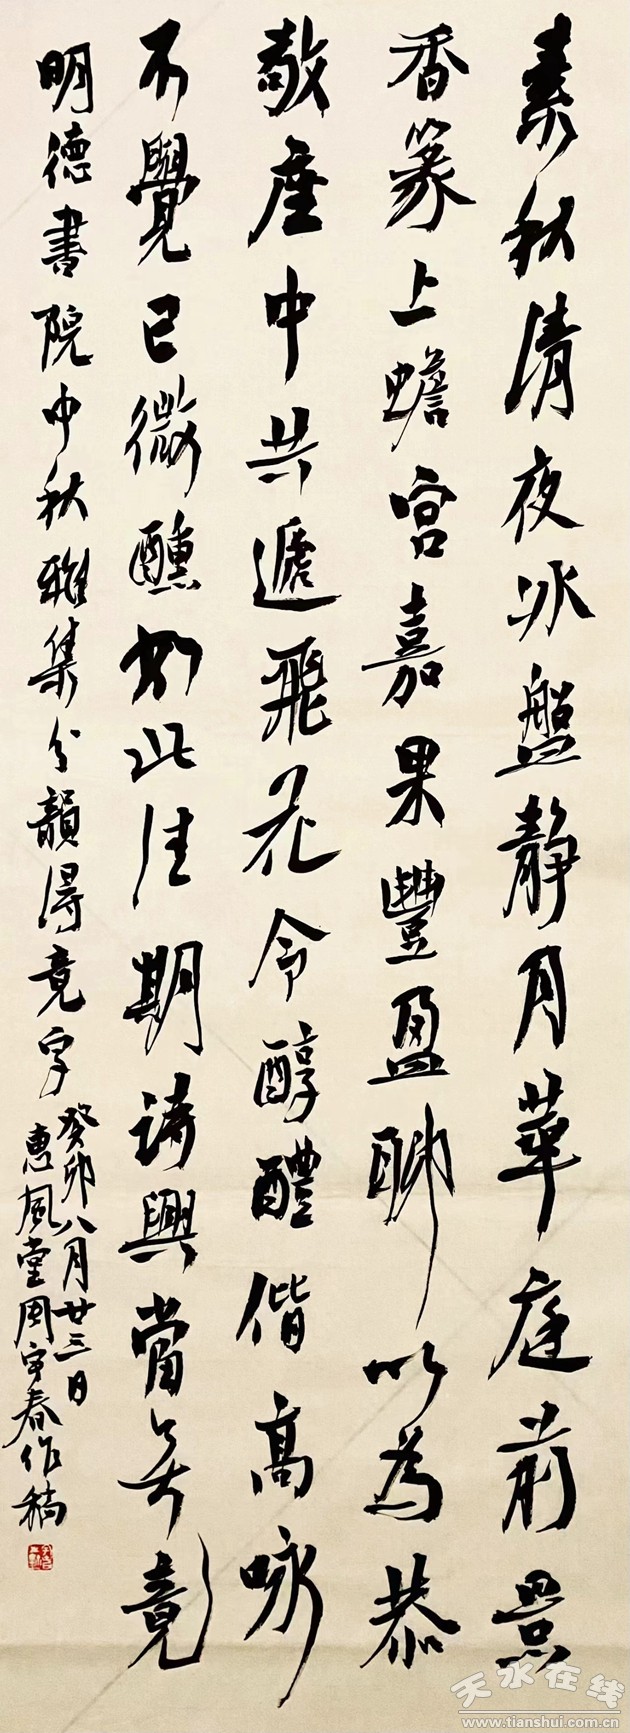 素秋清夜冰盤靜月華庭前景
香篆上蟾宮嘉果豐盈聊以為恭
敬座中共遞飛花令醇醴偕高咏
不覺已微醺如此佳期詩興當無竟
明德書院中秋雅集分韻得竟字
癸卯八月廿三日
惠風堂周宇春作稿
天水在线
www.tianshui.com.cn